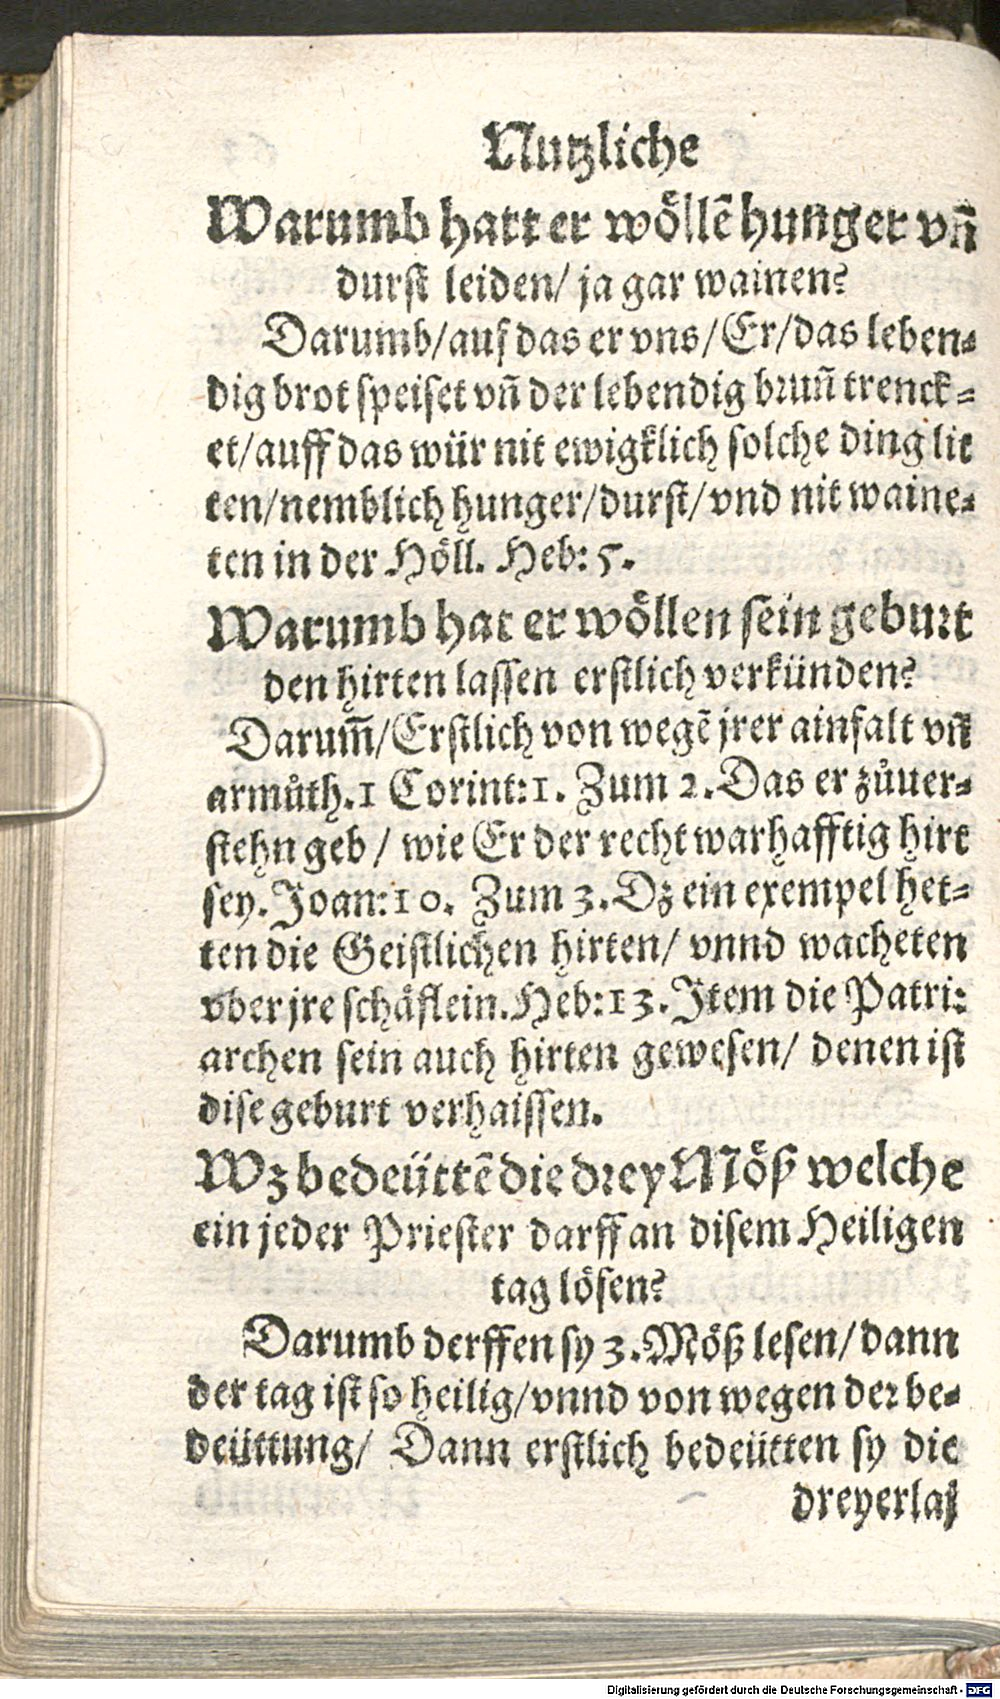 Nutzliche
Warumb hatt er wöllẽ hunger vñ
durst leiden/ ja gar wainen?
Darumb/auf das er vns/Er/das leben⸗
dig brot speiset vñ der lebendig brunñ trenck⸗
et/auff das wür nit ewigklich solche ding lit
ten/nemblich hunger/durst/vnd nit waine⸗
ten in der Höll. Heb: 5.
Warumb hat er wöllen sein geburt
den hirten lassen erstlich verkünden?
Darum̃/Erstlich von wegẽ jrer ainfalt vñ
armůth.1 Corint:1. Zum 2.Das er zůuer⸗
stehn geb/ wie Er der recht warhafftig hirt
sey. Joan:10. Zum 3.Dz ein exempel het⸗
ten die Geistlichen hirten/ vnnd wacheten
vber jre schäflein.Heb:13.Item die Patri⸗
archen sein auch hirten gewesen/ denen ist
dise geburt verhaissen.
Wz bedeüttẽ die drey Möß welche
ein jeder Priester darff an disem Heiligen
tag lösen?
Darumb derffen sy 3.Möß lesen/dann
der tag ist so heilig/vnnd von wegen der be⸗
deüttung/ Dann erstlich bedeütten sy die
dreyerlaj
Digitalisierung gefördert durch die Deutsche Forschungsgemeinschaft - DFG